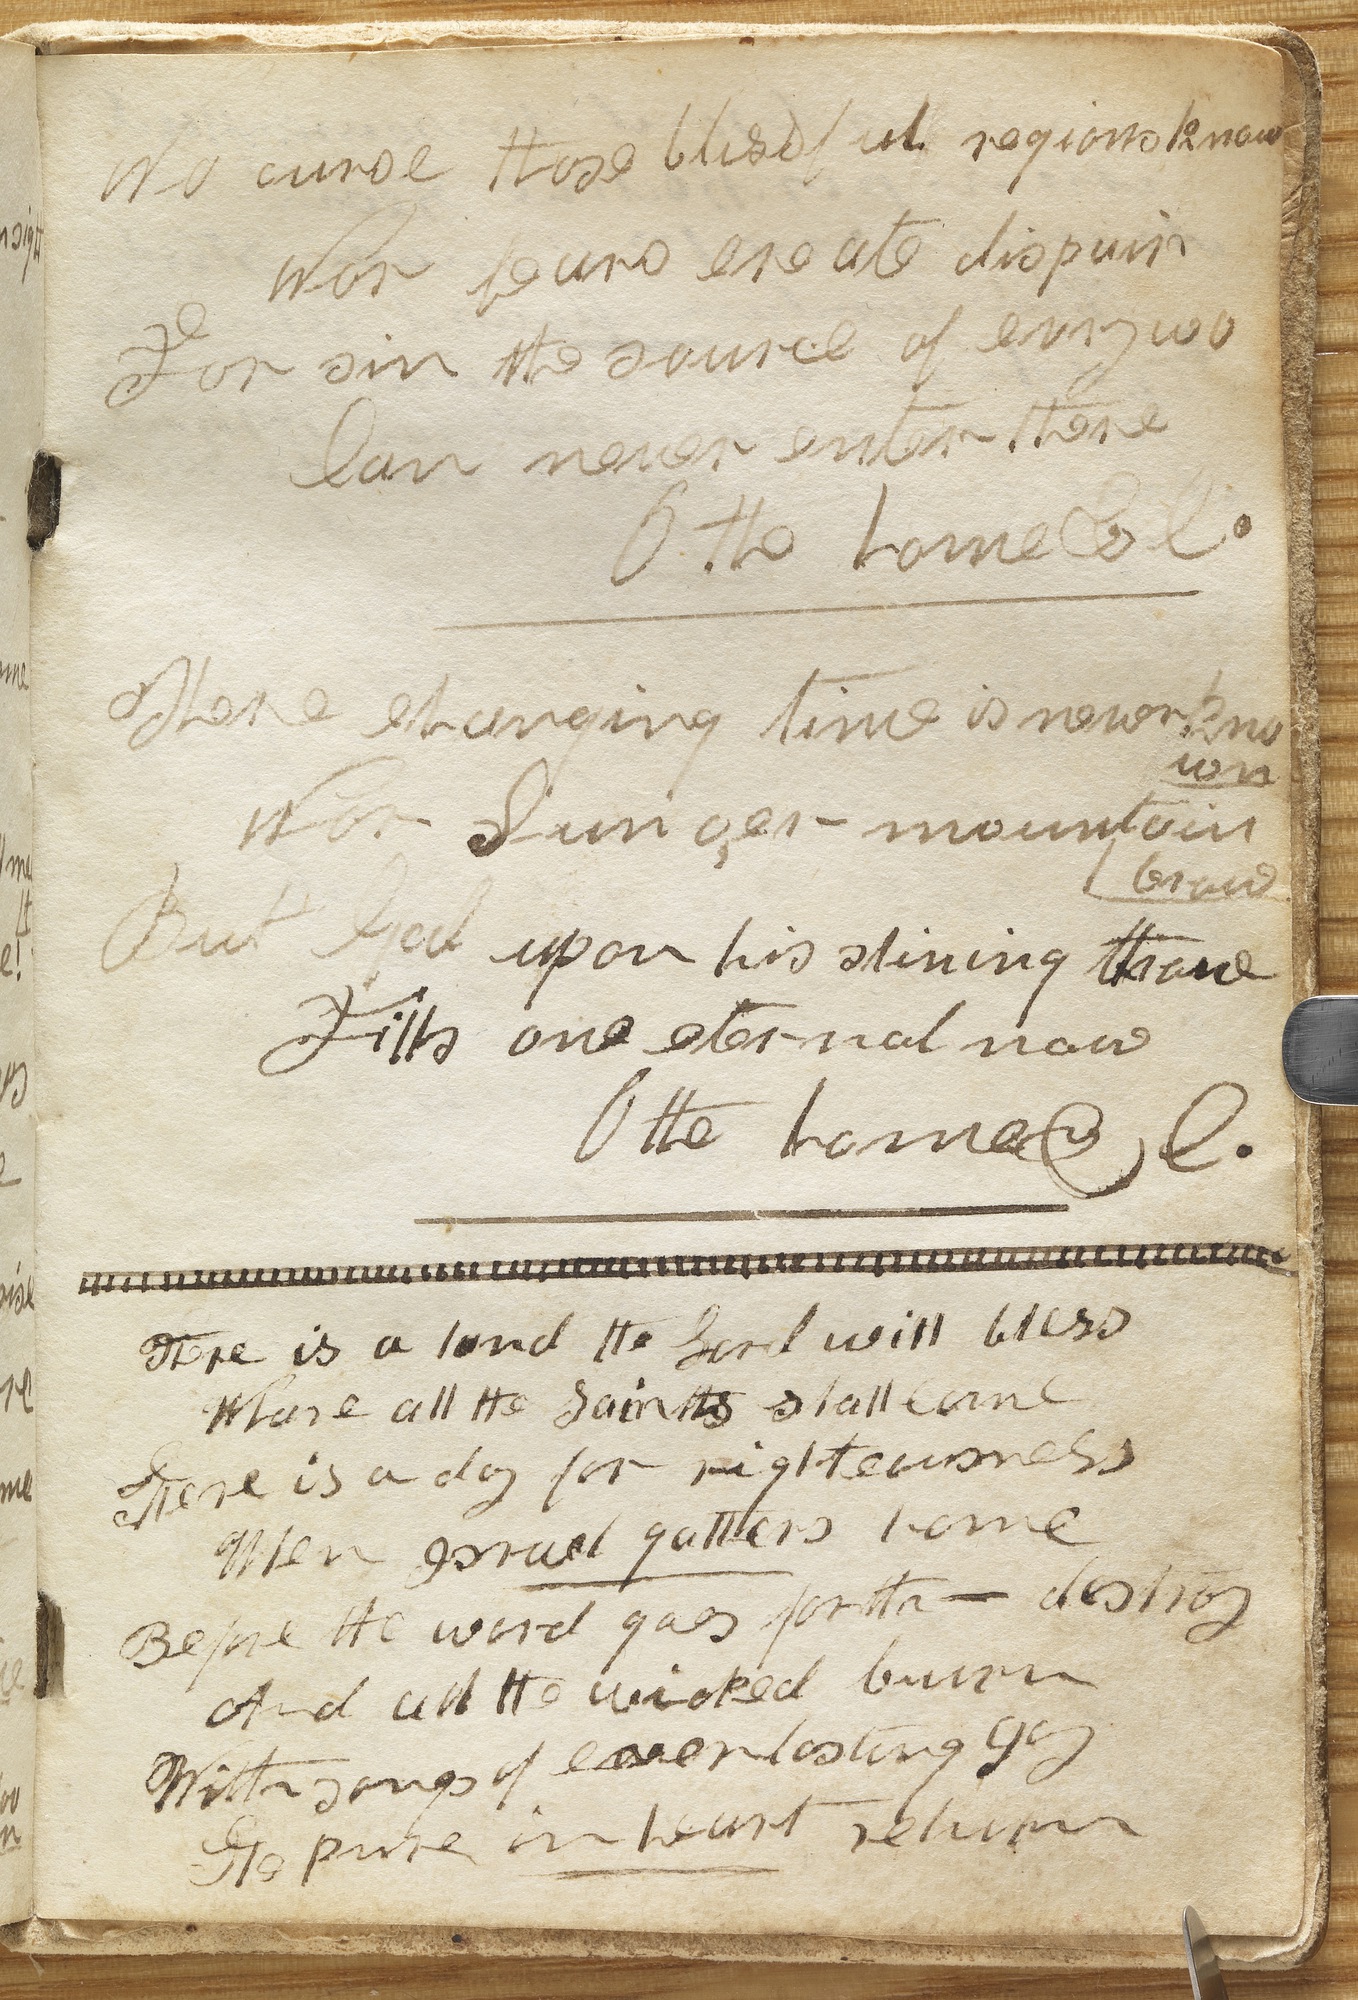 No curse those blissful regions know
Nor fears create dispair
For sin the source of evry wo
Can never enter there
O the home &c.
There changing time is never kno
wn
Nor Sun oer mountain
brow
But God upon his shining throne
Fills one eternal now
O the home & c.
There is a land the Lord will bless
Where all the Saints shall come
There is a day for righteousness
When Israel gathers home
Before the word goes forth — destroy
And all the wicked burn
With songs of everlasting Joy
The pure in heart return